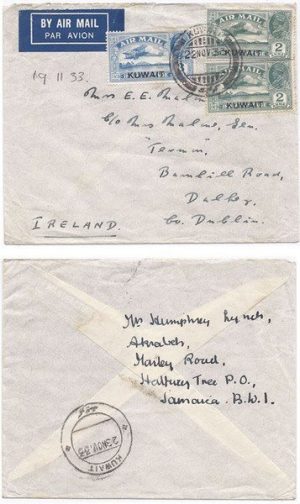 BY AIR MAIL
PAR AVION
AIR MAIL
KUWAIT
AIR MAIL
KUWAIT
2
AIR MAIL
KUWAIT
2
22 NOV 33
19 11 33.
Mrs E. E. Malone
c/o Mrs Malone, Sen.
Barnhill Road,
Dalkey
Co. Dublin.
IRELAND.
Mrs Humphrey Lynch,
Akrabeh,
Marley Road,
Halfway Tree P.O.,
Jamaica B.W.I.
KUWAIT
23 NOV. 33